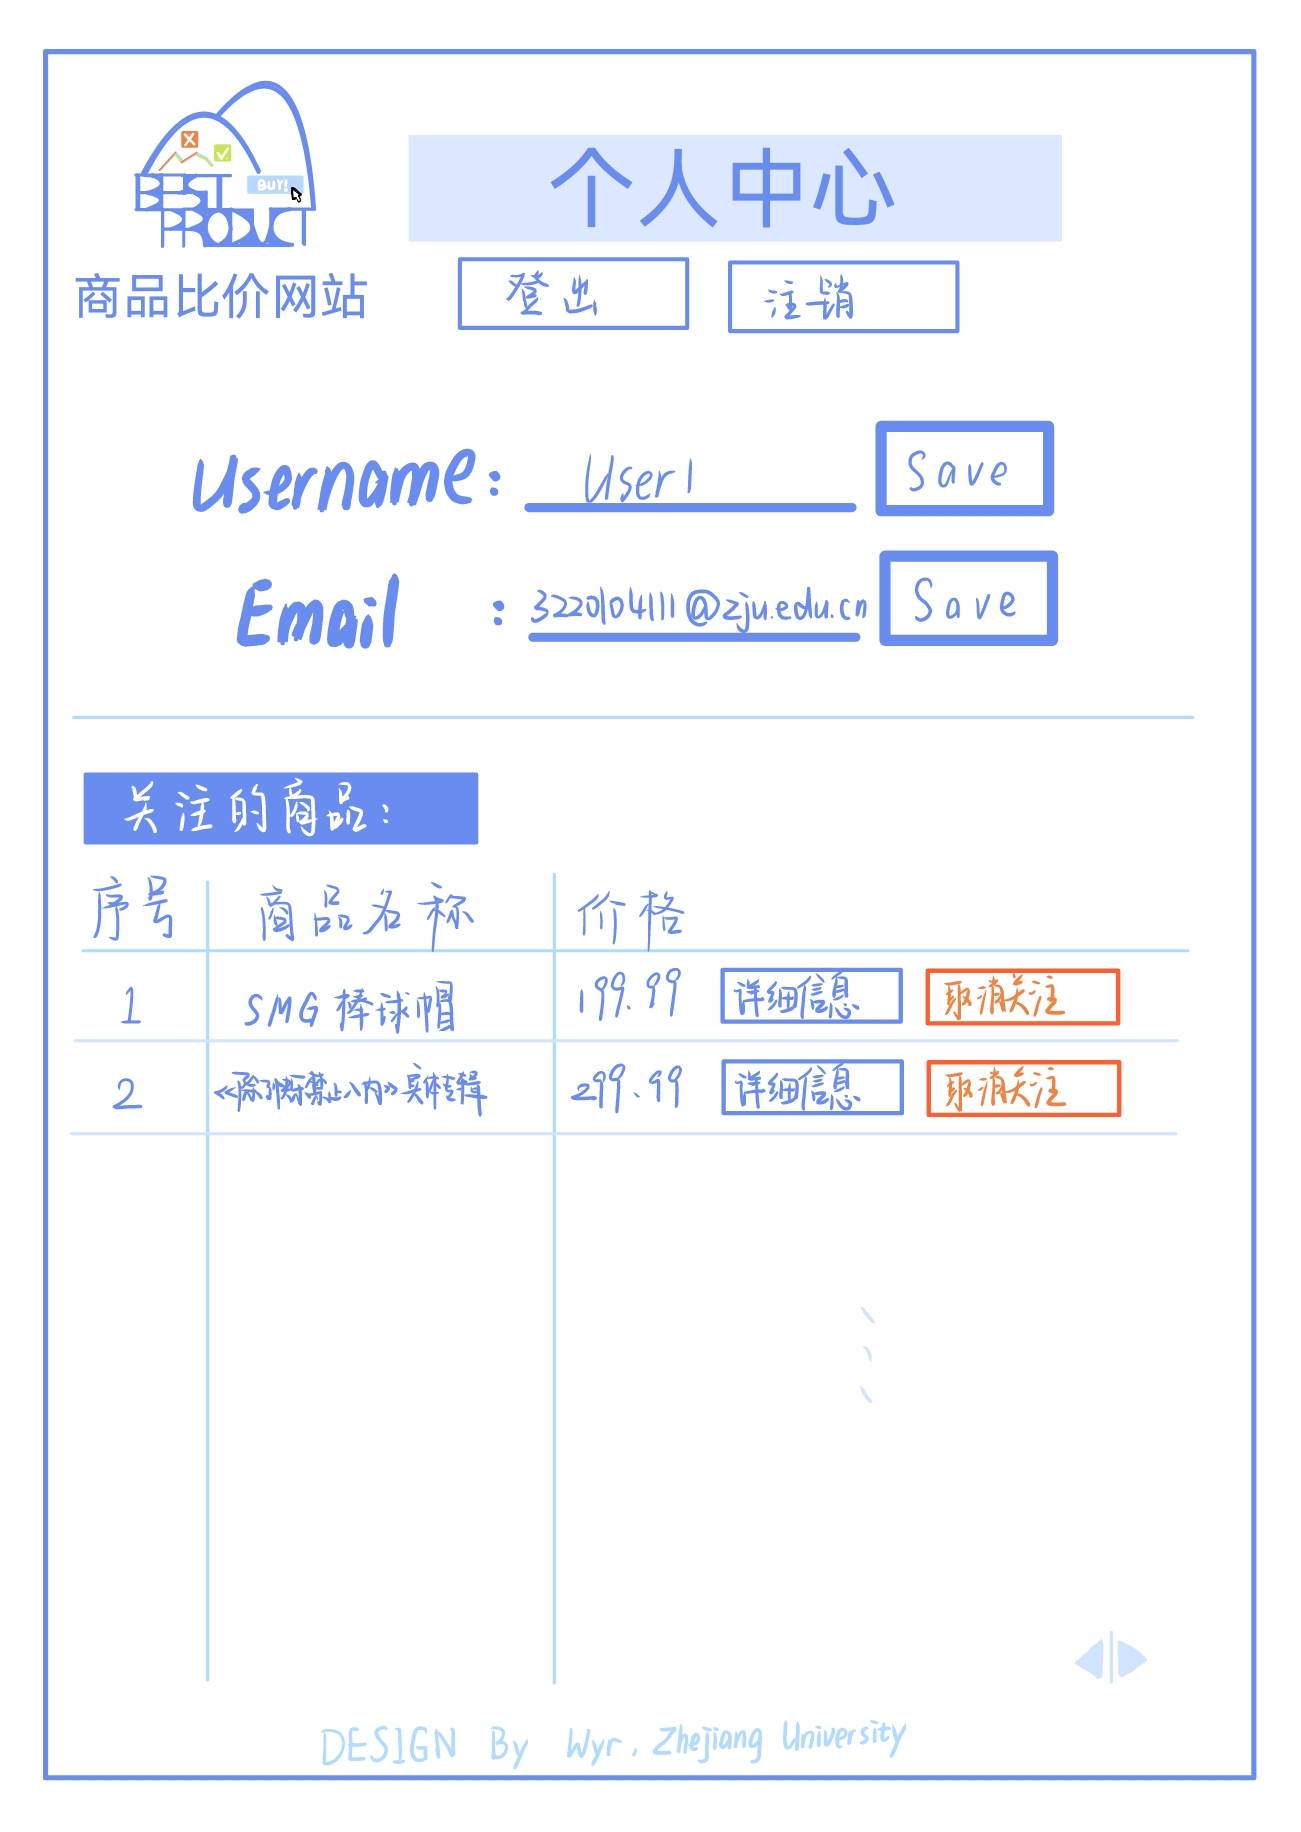 BEST
Buy!
PRODUCT
商品比价网站
个人中心
登出 注销
Username: User1 Save
Email : 3220104111@zju.edu.cn Save
关注的商品:
序号 商品名称 价格
1 SMG棒球帽 199.99 详细信息 取消关注
2 《除了快乐禁止入内》实体专辑 299.99 详细信息 取消关注
DESIGN By Wyr, Zhejiang University